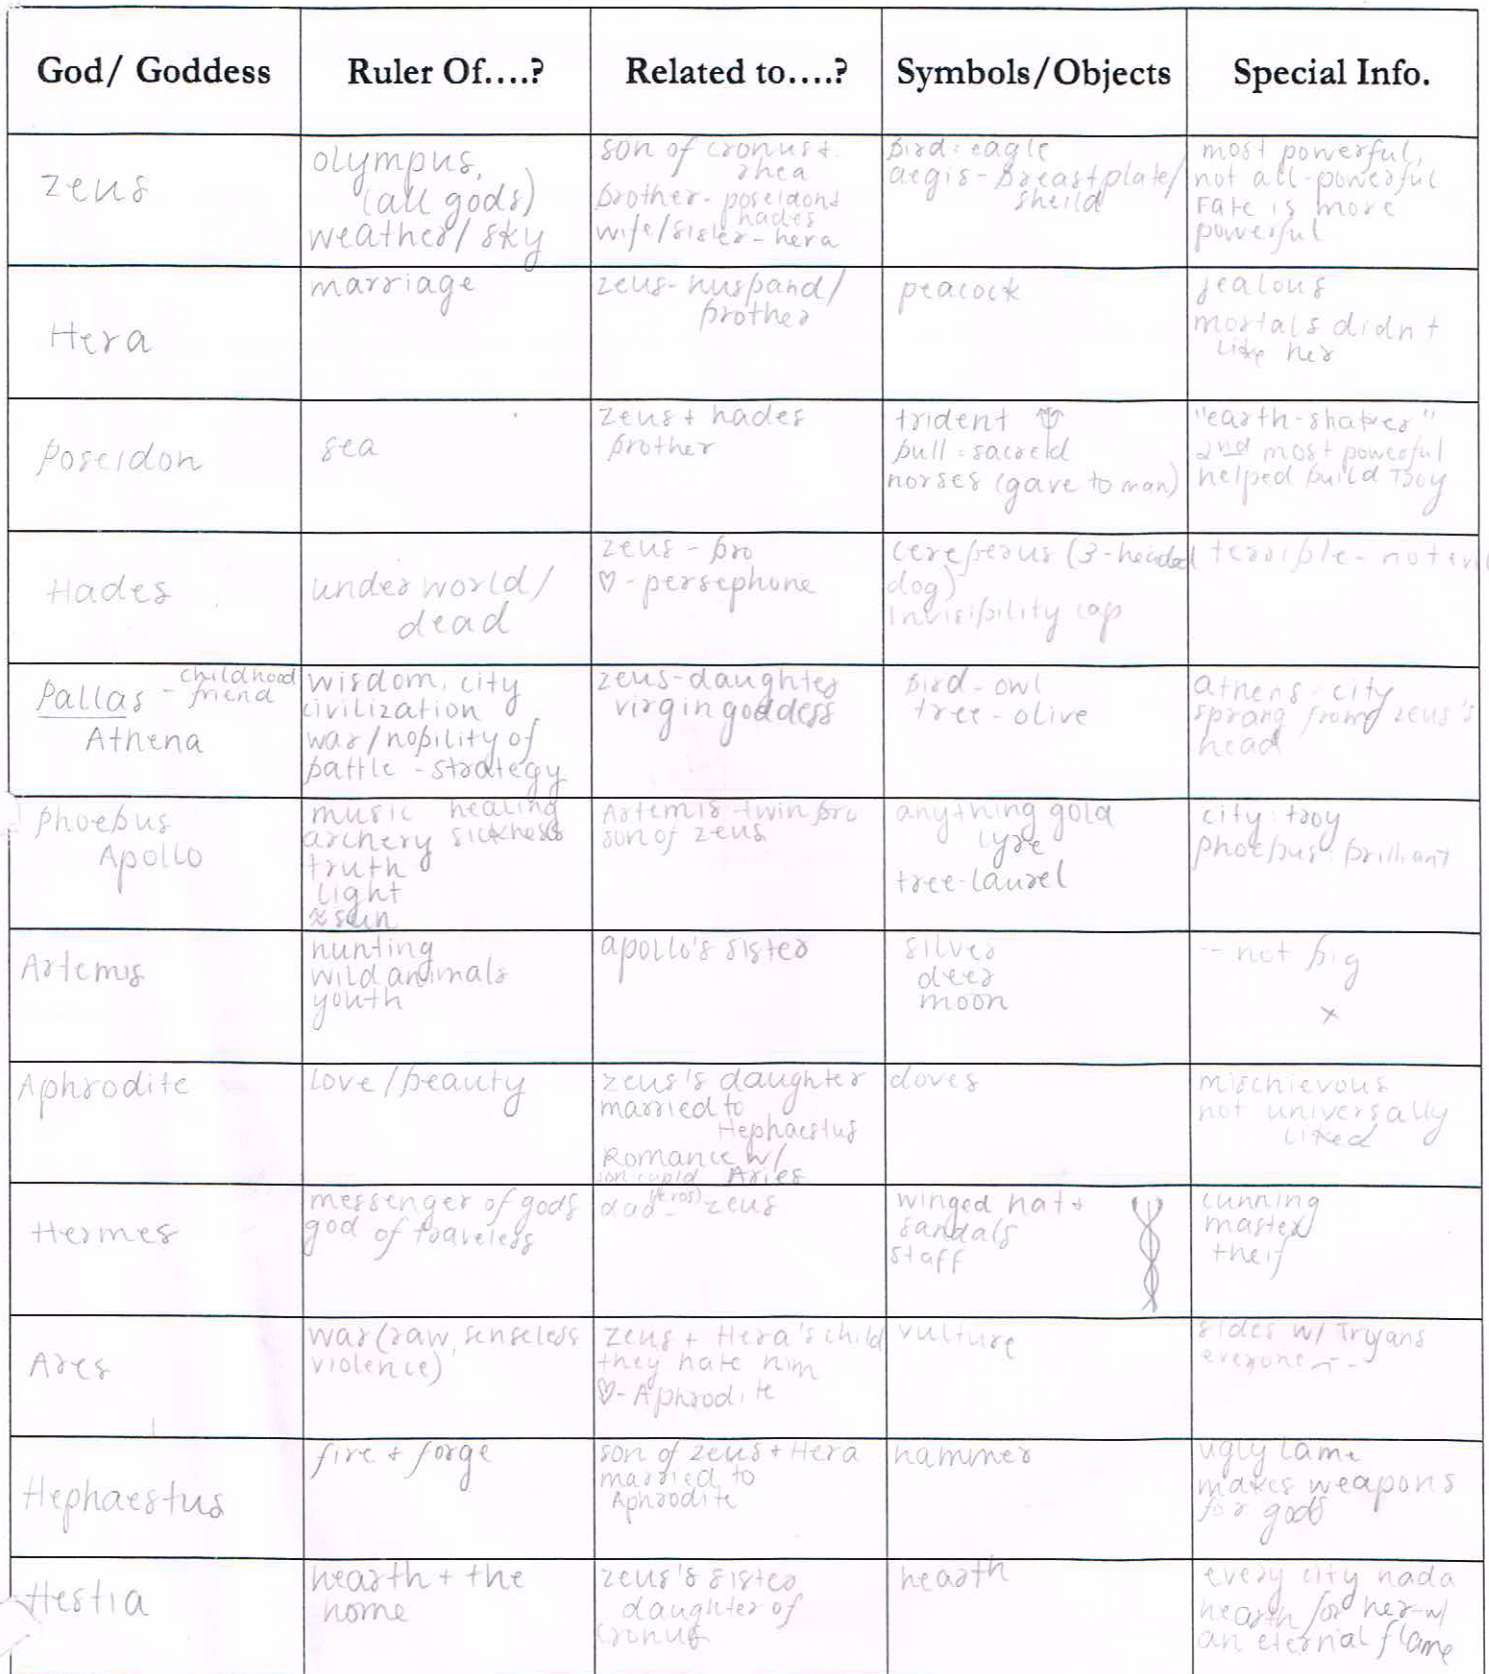 God/ Goddess
Ruler Of....?
Related to....?
Symbols/Objects
Special Info.
Zeus
olympus,
(all gods)
weather/ sky
son of cronus +
rhea
brother- poseidon +
hades
wife/sister- hera
bird: eagle
aegis- Breastplate/
sheild
most powerful,
not all-powerful
Fate is more
powerful
Hera
marriage
zeus- husband/
brother
peacock
jealous
mortals didnt
like her
Poseidon
sea
zeus + hades
brother
trident
bull = sacred
horses (gave to man)
"earth-shaker"
2nd most powerful
helped build Troy
Hades
underworld/
dead
zeus - bro
♡ - persephone
cereberus (3-headed
dog)
Invisibility cap
terrible- not evil
Pallas - childhood
friend
Athena
wisdom, city
civilization
war/nobility of
battle - strategy
zeus-daughter
virgin goddess
Bird- owl
tree - olive
athens - city
sprang from zeus's
head
Phoebus
Apollo
music healing
archery sickness
truth
light
≈ sun
Artemis - twin bro
son of zeus
anything gold
lyre
tree-laurel
city: troy
phoebus: brilliant
Artemis
hunting
wild animals
youth
apollo's sister
silver
deer
moon
- not big
x
Aphrodite
love/beauty
zeus's daughter
married to
Hephaestus
Romance w/
son cupid Aries
(eros)
doves
mischievous
not universally
liked
Hermes
messenger of gods
god of travelers
dad - zeus
winged hat +
sandals
staff
cunning
master
theif
Ares
war (raw, senseless
violence)
zeus + Hera's child
they hate him
♡- Aphrodite
vulture
sides w/ Tryans
everyone
Hephaestus
fire + forge
son of zeus + Hera
married to
Aphrodite
hammer
ugly lame
makes weapons
for gods
Hestia
hearth + the
home
zeus's sister
daughter of
cronus
hearth
every city had a
hearth for her w/
an eternal flame